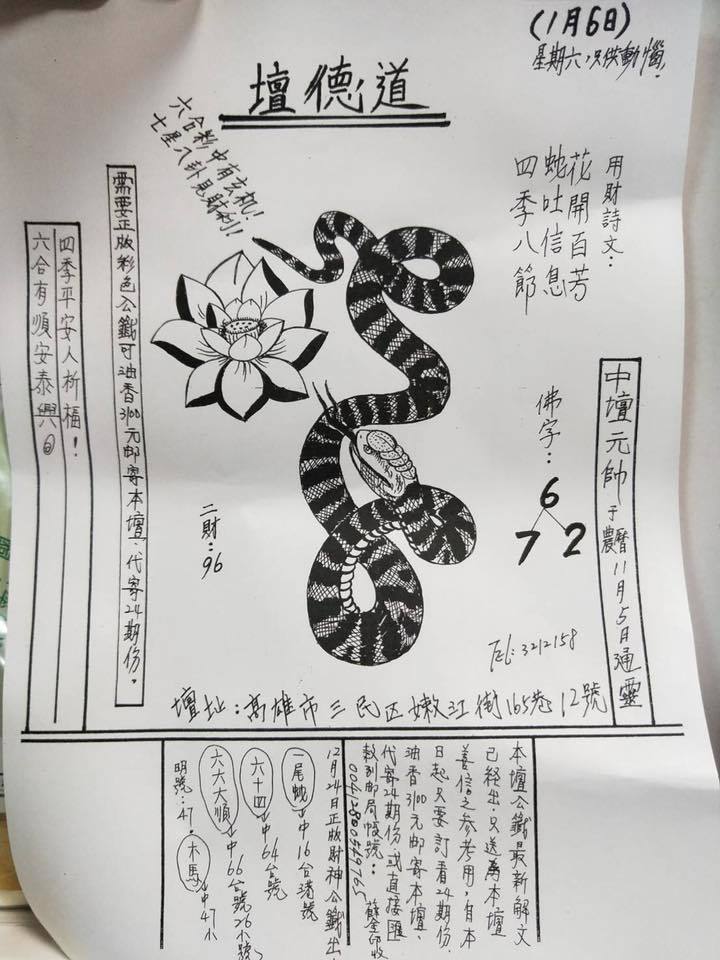 (1月6日)
星期六、只供動惱.
壇德道
六合彩中有玄机!
七星八卦見財利!!
用財詩文:
花開百芳
蛇吐信息
四季八節
佛字:
6
7 2
中壇元帥于農曆11月5日通靈
需要正版彩色公籤可油香3100元邮寄本壇、代寄24期份。
四季平安人祈福!
六合有順安泰興
二財:96
Tel:3212158
壇址:高雄市三民区嫩江街165巷12號
本壇公籤最新解文
已経出、只送為本壇
善信之参考用,自本
日起只要訂看24期份.
油香3100元邮寄本壇、
代寄24期份.或直接匯
款到邮局帳號:
00412800549765
12月24日正版財神公籤出.
一尾蛇→中16合港號
六十四→中64台號
六六大順→中66台號26小號
明號:47.
木馬→中47小